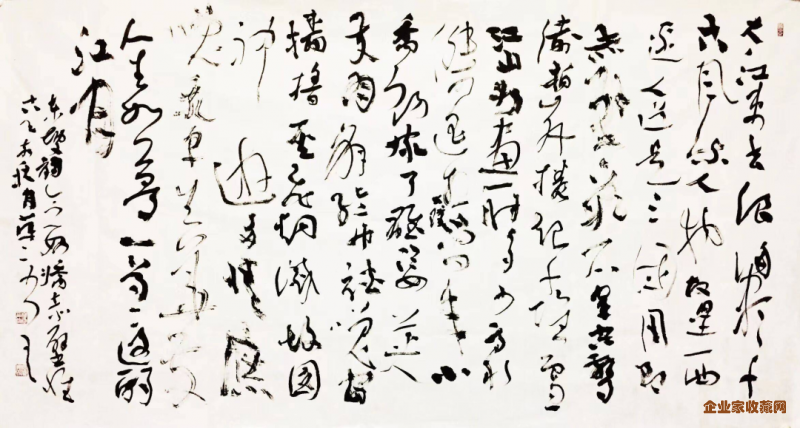 大江东去浪淘尽千
古风流人物故垒西
边人道是三国周郎
赤壁乱石穿空惊
涛拍岸卷起千堆雪
江山如画一时多少豪杰
遥想公瑾当年小
乔初嫁了雄姿英
发羽扇纶巾谈笑间
樯橹灰飞烟灭故国
神游多情应
笑我早生华发
人生如梦一尊还酹
江月
东坡词念奴娇赤壁怀
古
企业家收藏网